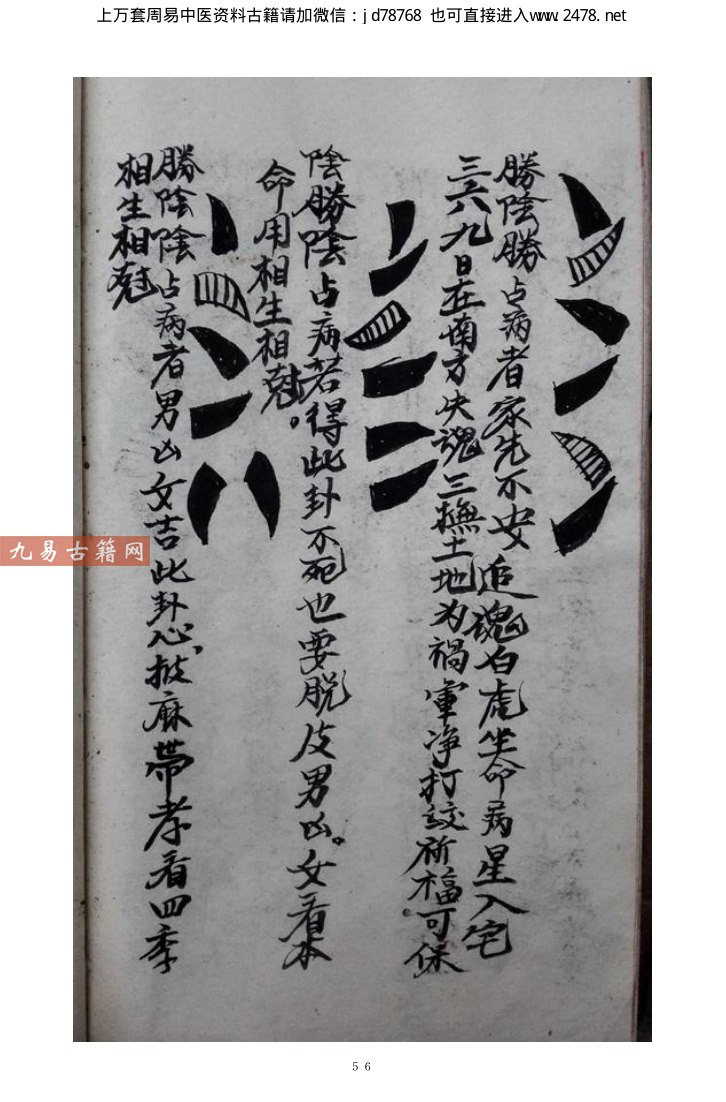 上万套周易中医资料古籍请加微信：jd78768 也可直接进入www.2478.net
勝陰勝占病者家先不安追魂白虎坐命病星入宅
三六九日在南方失魂三撫土地为禍軍净打紋祈福可保
陰勝陰占病若得此卦不死也要脱皮男凶。女看本
命用相生相尅。
勝陰陰占病者男凶女吉此卦心披麻帶孝看四季
相生相尅
九易古籍网
56